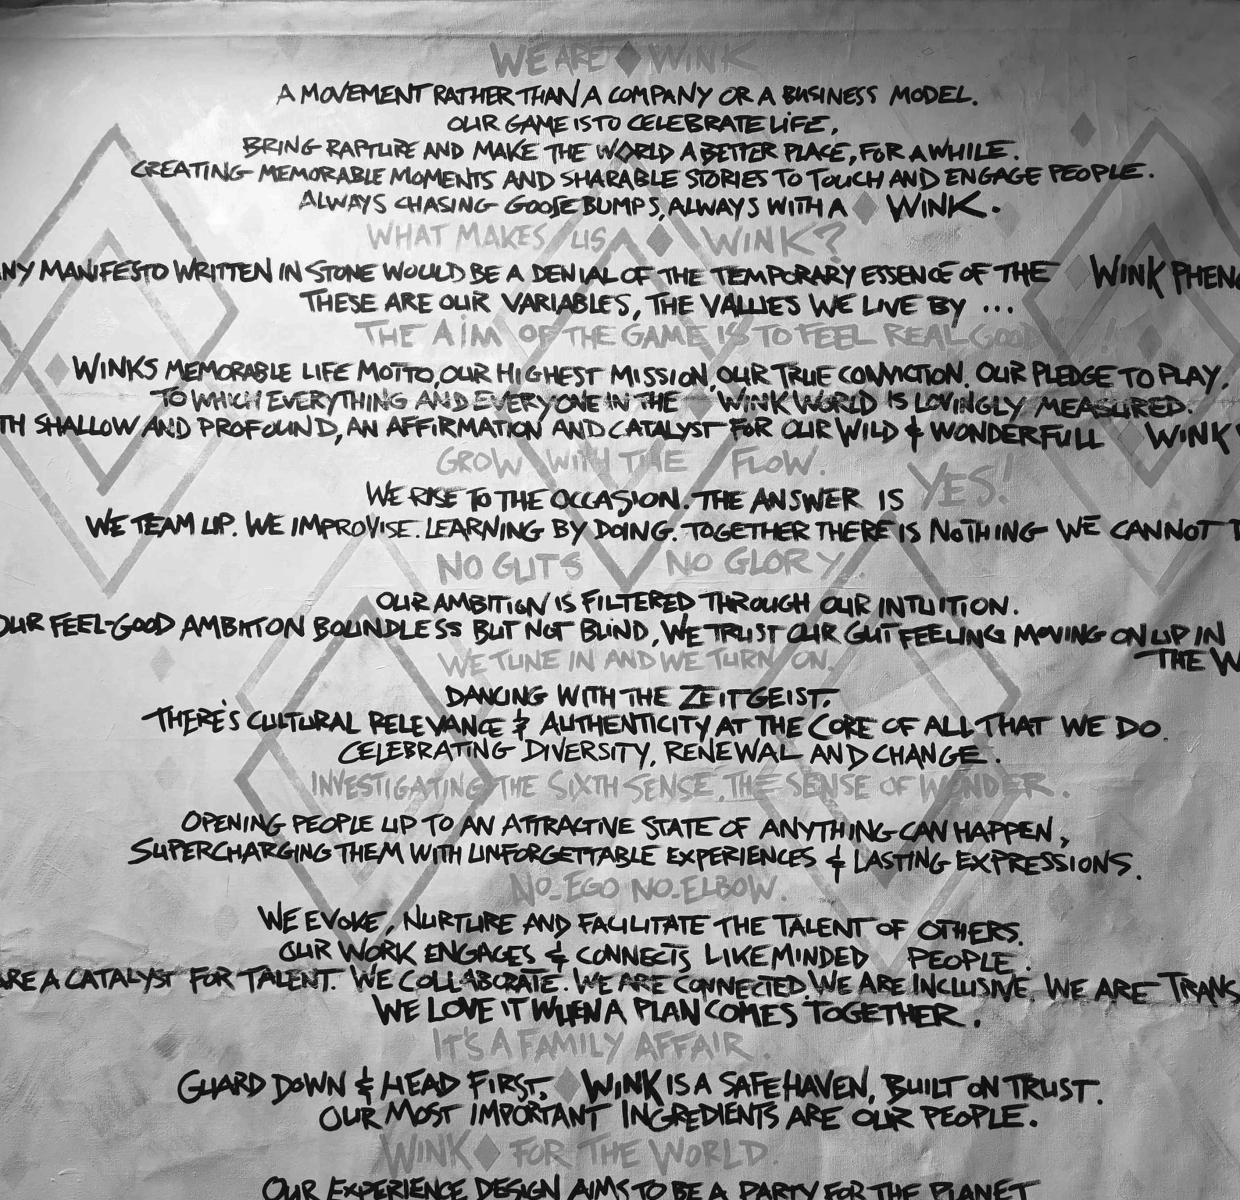 WE ARE WINK
A MOVEMENT RATHER THAN A COMPANY OR A BUSINESS MODEL.
OUR GAME IS TO CELEBRATE LIFE,
BRING RAPTURE AND MAKE THE WORLD A BETTER PLACE, FOR A WHILE.
CREATING MEMORABLE MOMENTS AND SHARABLE STORIES TO TOUCH AND ENGAGE PEOPLE.
ALWAYS CHASING GOOSEBUMPS, ALWAYS WITH A WINK.
WHAT MAKES US WINK?
NY MANIFESTO WRITTEN IN STONE WOULD BE A DENIAL OF THE TEMPORARY ESSENCE OF THE WINK PHENO
THESE ARE OUR VARIABLES, THE VALUES WE LIVE BY ...
THE AIM OF THE GAME IS TO FEEL REAL GOOD!
WINKS MEMORABLE LIFE MOTTO, OUR HIGHEST MISSION, OUR TRUE CONVICTION. OUR PLEDGE TO PLAY.
TO WHICH EVERYTHING AND EVERYONE IN THE WINK WORLD IS LOVINGLY MEASURED.
TH SHALLOW AND PROFOUND, AN AFFIRMATION AND CATALYST FOR OUR WILD & WONDERFULL WINK
GROW WITH THE FLOW.
WE RISE TO THE OCCASION. THE ANSWER IS YES!
WE TEAM UP. WE IMPROVISE. LEARNING BY DOING. TOGETHER THERE IS NOTHING WE CANNOT
NO GUTS NO GLORY.
OUR AMBITION IS FILTERED THROUGH OUR INTUITION.
OUR FEEL-GOOD AMBITION BOUNDLESS BUT NOT BLIND, WE TRUST OUR GUT FEELING MOVING ON UP IN
THE W
WE TUNE IN AND WE TURN ON.
DANCING WITH THE ZEITGEIST.
THERE'S CULTURAL RELEVANCE & AUTHENTICITY AT THE CORE OF ALL THAT WE DO.
CELEBRATING DIVERSITY, RENEWAL AND CHANGE.
INVESTIGATING THE SIXTH SENSE, THE SENSE OF WONDER.
OPENING PEOPLE UP TO AN ATTRACTIVE STATE OF ANYTHING CAN HAPPEN,
SUPERCHARGING THEM WITH UNFORGETTABLE EXPERIENCES & LASTING EXPRESSIONS.
NO-EGO NO-ELBOW.
WE EVOKE, NURTURE AND FACILITATE THE TALENT OF OTHERS.
OUR WORK ENGAGES & CONNECTS LIKEMINDED PEOPLE.
ARE A CATALYST FOR TALENT. WE COLLABORATE. WE ARE CONNECTED. WE ARE INCLUSIVE. WE ARE TRANS
WE LOVE IT WHEN A PLAN COMES TOGETHER.
IT'S A FAMILY AFFAIR.
GUARD DOWN & HEAD FIRST, WINK IS A SAFE HAVEN, BUILT ON TRUST.
OUR MOST IMPORTANT INGREDIENTS ARE OUR PEOPLE.
WINK FOR THE WORLD.
OUR EXPERIENCE DESIGN AIMS TO BE A PARTY FOR THE PLANET